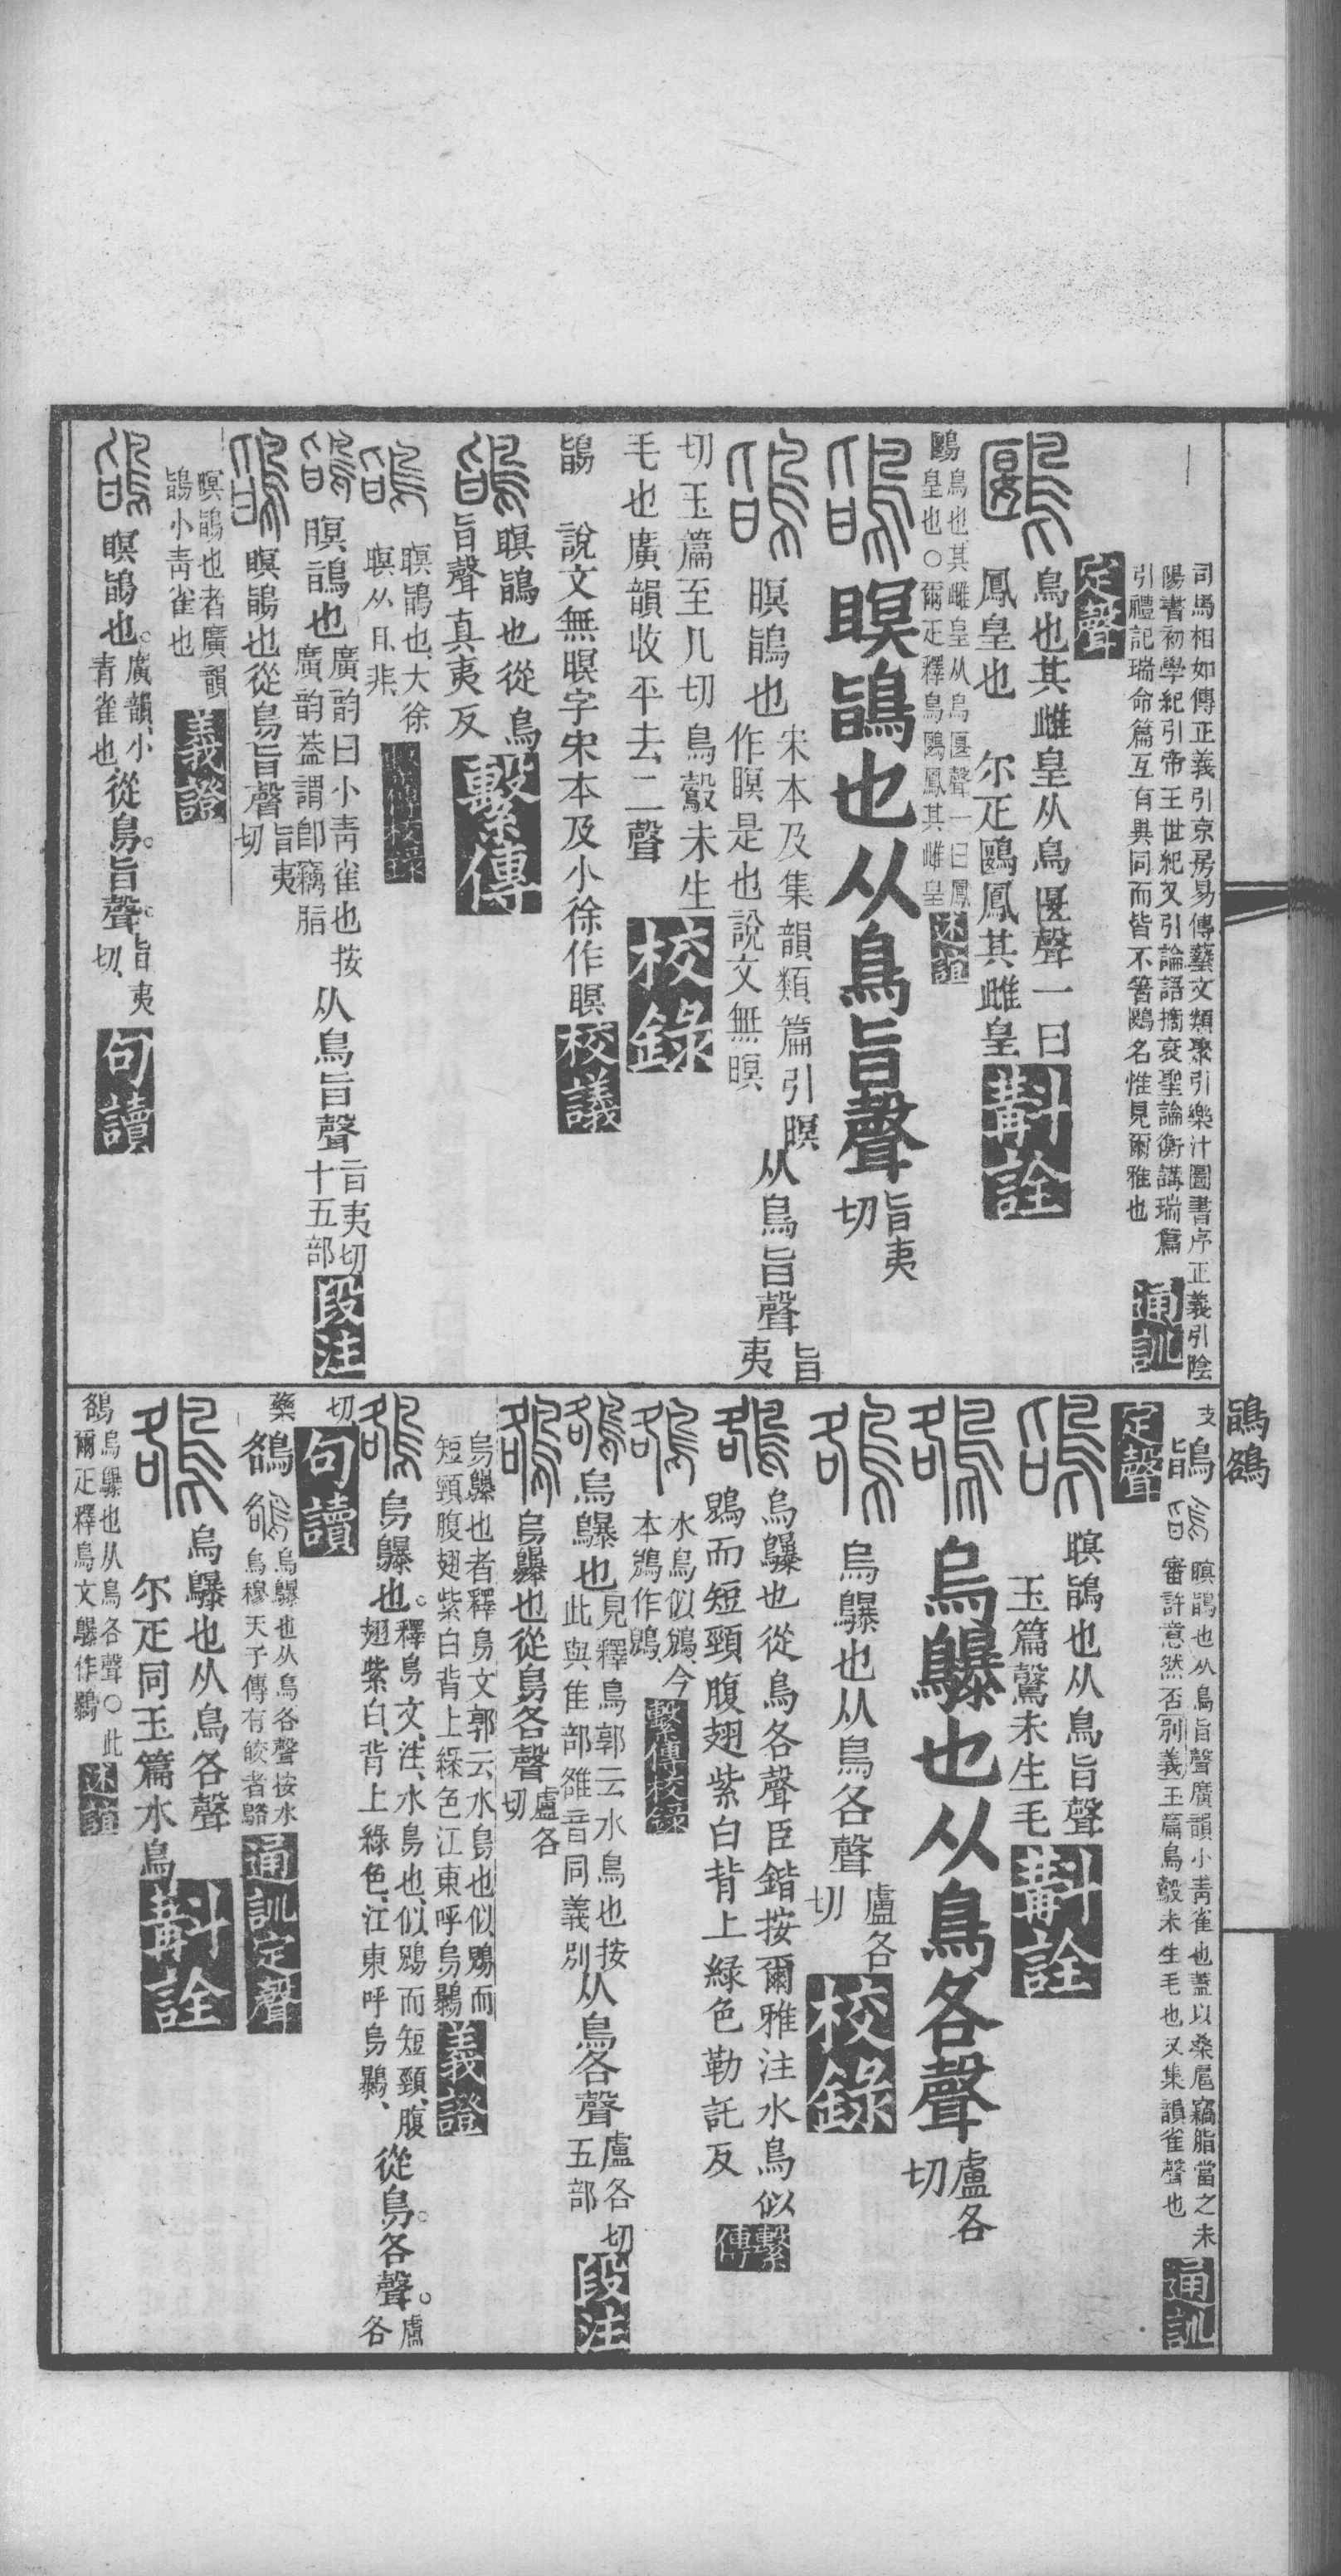 司馬相如傳正義引京房易傳藝文類聚引樂汁圖書序正義引陰
陽書初學紀引帝王世紀又引論語摘衰聖論衡講瑞篇
引禮記瑞命篇互有異同而皆不箸鶠名惟見爾雅也
通訓
定聲
鳥也其雌皇从鳥匽聲一曰
鳳皇也 尔疋鶠鳳其雌皇
斠詮
鶠
鳥也其雌皇从鳥匽聲一曰鳳
皇也○爾疋釋鳥鶠鳳其雌皇
述誼
瞑鴲也从鳥旨聲
旨夷
切
瞑鴲也
宋本及集韻類篇引瞑
作瞑是也說文無瞑
从鳥旨聲
旨
夷
切玉篇至几切鳥鷇未生
毛也廣韻收平去二聲
校錄
鴲 說文無暝字宋本及小徐作瞑
校議
瞑鴲也從鳥
旨聲真夷反
繫傳
瞑鴲也大徐
瞑从日非
繫傳校錄
瞑鴲也
廣韵曰小靑雀也按
廣韵葢謂卽竊脂
从鳥旨聲
旨夷切
十五部
段注
瞑鴲也從鳥旨聲
旨夷
切
瞑鴲也者廣韻
鴲小靑雀也
義證
瞑鴲也
廣韻小
青雀也
從鳥旨聲
旨夷
切
句讀
鴲鵅
支
鴲
瞑鴲也从鳥旨聲廣韻小靑雀也蓋以桑扈竊脂當之未
審許意然否別義玉篇鳥鷇未生毛也又集韻雀聲也
通訓
定聲
瞑鴲也从鳥旨聲
玉篇鷇未生毛
斠詮
烏鸔也从鳥各聲
盧各
切
烏鸔也从鳥各聲
盧各
切
校錄
烏鸔也從鳥各聲臣鍇按爾雅注水鳥似
鶂而短頸腹翅紫白背上綠色勒託反
繫傳
水鳥似鶂今
本鶂作鶂
繫傳校錄
烏鸔也
見釋鳥郭云水鳥也按
此與隹部雒音同義別
从鳥各聲
盧各切
五部
段注
烏鸔也從鳥各聲
盧各
切
烏鸔也者釋鳥文郭云水鳥也似鶂而
短頸腹翅紫白背上綠色江東呼烏鸔
義證
烏鸔也
釋鳥文注水鳥也似鶂而短頸腹
翅紫白背上綠色江東呼烏鸔
從鳥各聲
盧
各
切
句讀
藥
鵅
烏鸔也从鳥各聲按水
鳥穆天子傳有皎者鵅
通訓定聲
烏鸔也从鳥各聲
尔疋同玉篇水鳥
斠詮
鵅
烏鸔也从鳥各聲○此
爾疋釋鳥文鸔作鸔
述誼